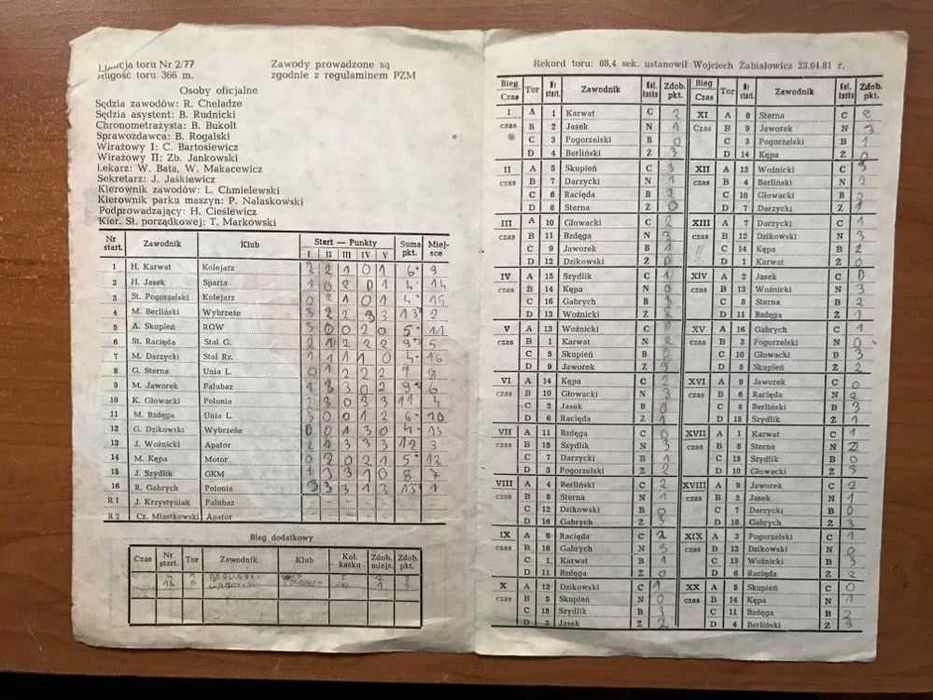 toru Nr 2/77
toru 366 m.
Zawody prowadzone są
zgodnie z regulaminem PZM
Osoby oficjalne
Sędzia zawodów: R. Cheladze
Sędzia asystent: B. Rudnicki
Chronometrażysta: B. Bukolt
Sprawozdawca: B. Rogalski
Wirażowy I: C. Bartosiewicz
Wirażowy II: Zb. Jankowski
Lekarz: W. Bata, W. Makacewicz
Sekretarz: J. Jaśkiewicz
Kierownik zawodów: L. Chmielewski
Kierownik parku maszyn: P. Nalaskowski
Podprowadzający: H. Cieślewicz
Kier. Sł. porządkowej: T. Markowski
Nr start. Zawodnik Klub Start — Punkty Suma pkt. Miejsce
I II III IV V
1 H. Karwat Kolejarz 2 2 1 0 1 6 9
2 H. Jasek Sparta 1 0 2 0 1 4 14
3 St. Pogorzelski Kolejarz 0 2 1 0 1 4 15
4 M. Berliński Wybrzeże 3 2 2 3 3 13 2
5 A. Skupień ROW 3 0 0 2 0 5 11
6 St. Racięda Stal G. 2 1 2 2 2 9 5
7 M. Darzycki Stal Rz. 1 1 1 1 0 4 16
8 G. Sterna Unia L. 0 1 2 2 2 7 8
9 M. Jaworek Falubaz 1 3 3 0 2 9 6
10 K. Głowacki Polonia 2 3 0 3 3 11 4
11 M. Bzdęga Unia L. 3 0 0 1 2 6 10
12 G. Dzikowski Wybrzeże 0 0 1 3 0 4 13
13 J. Woźnicki Apator 2 1 3 3 3 12 3
14 M. Kępa Motor 0 2 0 2 1 5 12
15 J. Szydlik GKM 1 3 3 1 0 8 7
16 R. Gabrych Polonia 3 3 3 1 3 13 1
R 1 J. Krzystyniak Falubaz
R 2 Cz. Miastkowski Apator
Bieg dodatkowy
Czas Nr start. Tor Zawodnik Klub Kol. kasku Zdob. miejs. Zdob. pkt.
Rekord toru: 68,4 sek. ustanowił Wojciech Żabiałowicz 23.04.81 r.
Bieg Czas Tor Nr start. Zawodnik Kol. kasku Zdob. pkt.
I A 1 Karwat C 2
czas B 2 Jasek N 1
C 3 Pogorzelski B 0
D 4 Berliński Ż 3
II A 5 Skupień C 3
czas B 7 Darzycki N 1
C 6 Racięda B 2
D 8 Sterna Ż 0
III A 10 Głowacki C 2
czas B 11 Bzdęga N 3
C 9 Jaworek B 1
D 12 Dzikowski Ż 0
IV A 15 Szydlik C 1
czas B 14 Kępa N 0
C 16 Gabrych B 3
D 13 Woźnicki Ż 2
V A 13 Woźnicki C 1
czas B 1 Karwat N 2
C 5 Skupień B 0
D 9 Jaworek Ż 3
VI A 14 Kępa C 2
czas B 10 Głowacki N 3
C 2 Jasek B 0
D 6 Racięda Ż 1
VII A 11 Bzdęga C 0
czas B 15 Szydlik N 3
C 7 Darzycki B 1
D 3 Pogorzelski Ż 2
VIII A 4 Berliński C 2
czas B 8 Sterna N 1
C 12 Dzikowski B 0
D 16 Gabrych Ż 3
IX A 6 Racięda C 2
czas B 16 Gabrych N 3
C 1 Karwat B 1
D 11 Bzdęga Ż 0
X A 12 Dzikowski C 1
czas B 5 Skupień N 0
C 15 Szydlik B 3
D 2 Jasek Ż 2
Bieg Czas Tor Nr start. Zawodnik Kol. kasku Zdob. pkt.
XI A 8 Sterna C 2
Czas B 9 Jaworek N 3
C 3 Pogorzelski B 1
D 14 Kępa Ż 0
XII A 13 Woźnicki C 3
czas B 4 Berliński N 2
C 10 Głowacki B 0
D 7 Darzycki Ż 1
XIII A 7 Darzycki C 1
czas B 12 Dzikowski N 3
C 14 Kępa B 2
D 1 Karwat Ż 0
XIV A 2 Jasek C 0
czas B 13 Woźnicki N 3
C 8 Sterna B 2
D 11 Bzdęga Ż 1
XV A 16 Gabrych C 1
czas B 3 Pogorzelski N 0
C 10 Głowacki B 3
D 5 Skupień Ż 2
XVI A 9 Jaworek C 0
czas B 6 Racięda N 2
C 4 Berliński B 3
D 15 Szydlik Ż 1
XVII A 1 Karwat C 1
czas B 8 Sterna N 2
C 15 Szydlik B 0
D 10 Głowacki Ż 3
XVIII A 9 Jaworek C 2
czas B 2 Jasek N 1
C 7 Darzycki B 0
D 16 Gabrych Ż 3
XIX A 3 Pogorzelski C 1
czas B 12 Dzikowski N 0
C 13 Woźnicki B 3
D 6 Racięda Ż 2
XX A 5 Skupień C 0
czas B 14 Kępa N 1
C 11 Bzdęga B 2
D 4 Berliński Ż 3